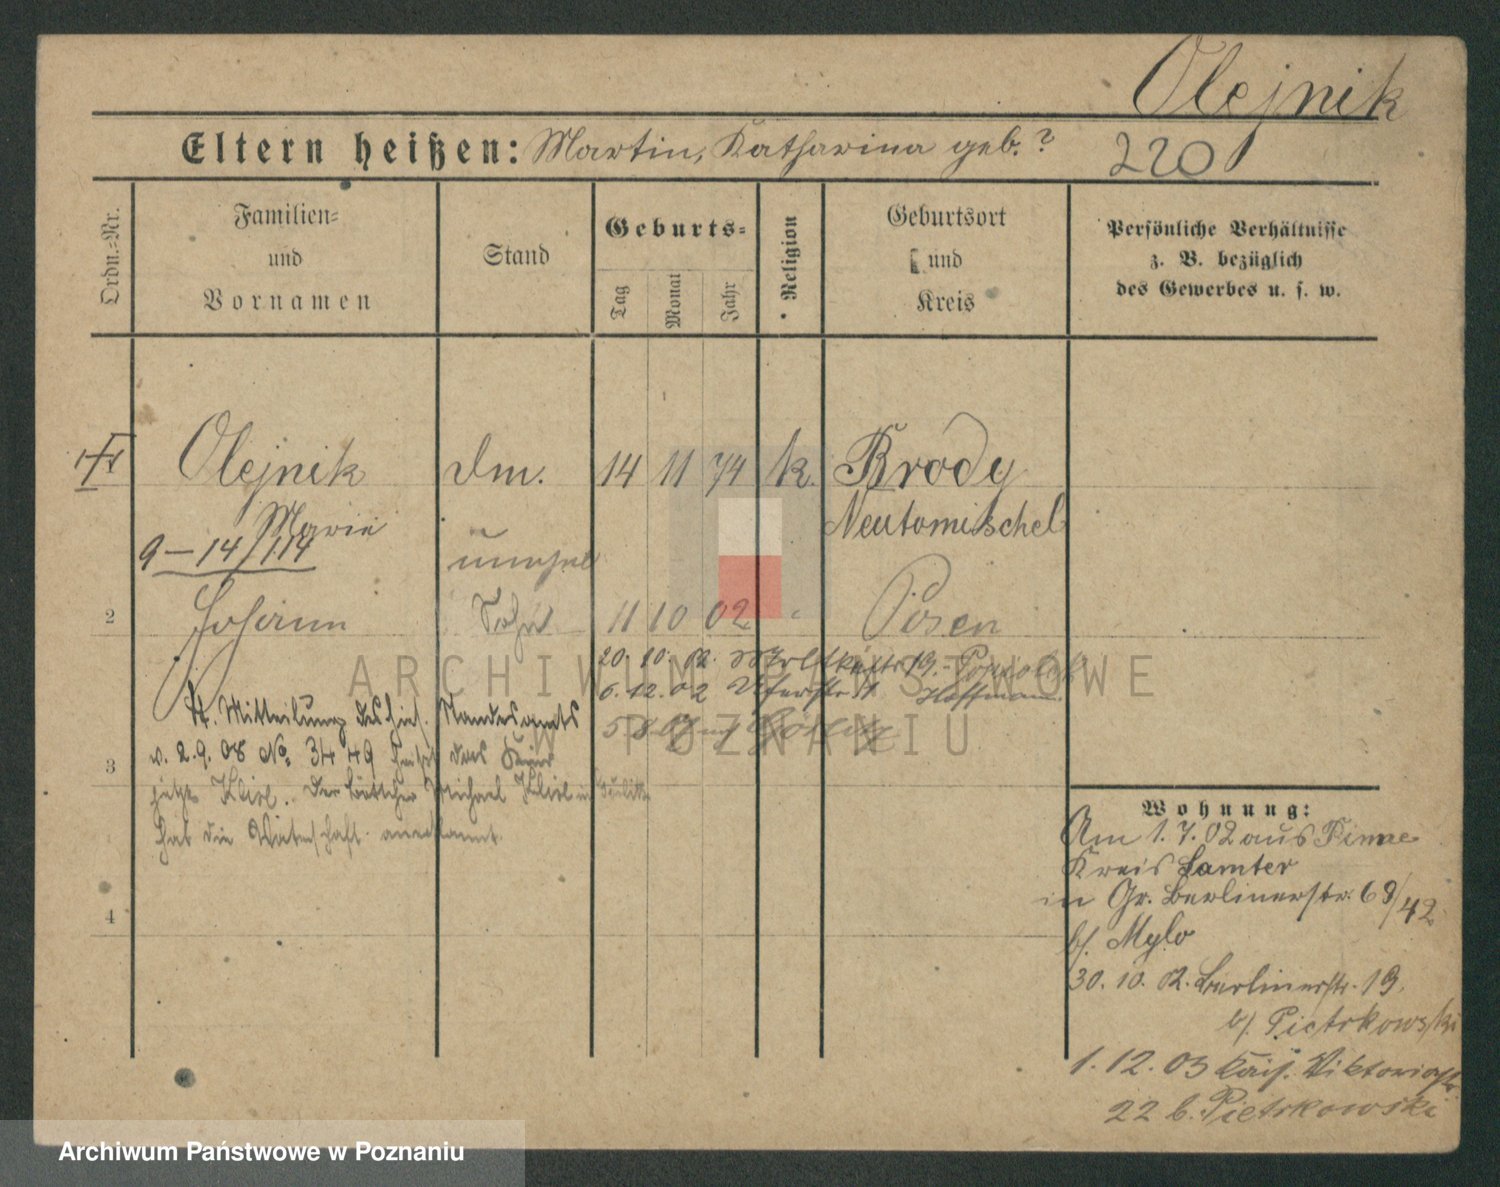 Olejnik
Eltern heißen: Martin, Katharina geb. ?
220
Ordn.=Nr.
Familien=
und
Vornamen
Stand
Geburts=
Tag
Monat
Jahr
Religion
Geburtsort
und
Kreis
Persönliche Verhältnisse
z. B. bezüglich
des Gewerbes u. s. w.
Olejnik dm. 14 11 74 k. Brody
Marie Neutomischel
9 – 14/1.14
unehel
2 Johann Sohn 11 10 02 Posen
20. 10. 02. 19.
6. 12. 02 Hoffmann
lt. Mitteilung des hies. Standesamts
v. 2. 9. 08 No. 3449 das
3
jetzt Der Michael in
hat die anerkannt.
4
Wohnung:
Am 1. 7. 02 aus Pinne
Kreis Samter
in Gr. Berlinerstr. 68/42
b/. Mylo
30. 10. 02. Berlinerstr. 19.
b/. Pietrkowski
1. 12. 03 Kais. Viktoriastr.
22 b. Pietrkowski
ARCHIWUM PAŃSTWOWE
W POZNANIU
Archiwum Państwowe w Poznaniu